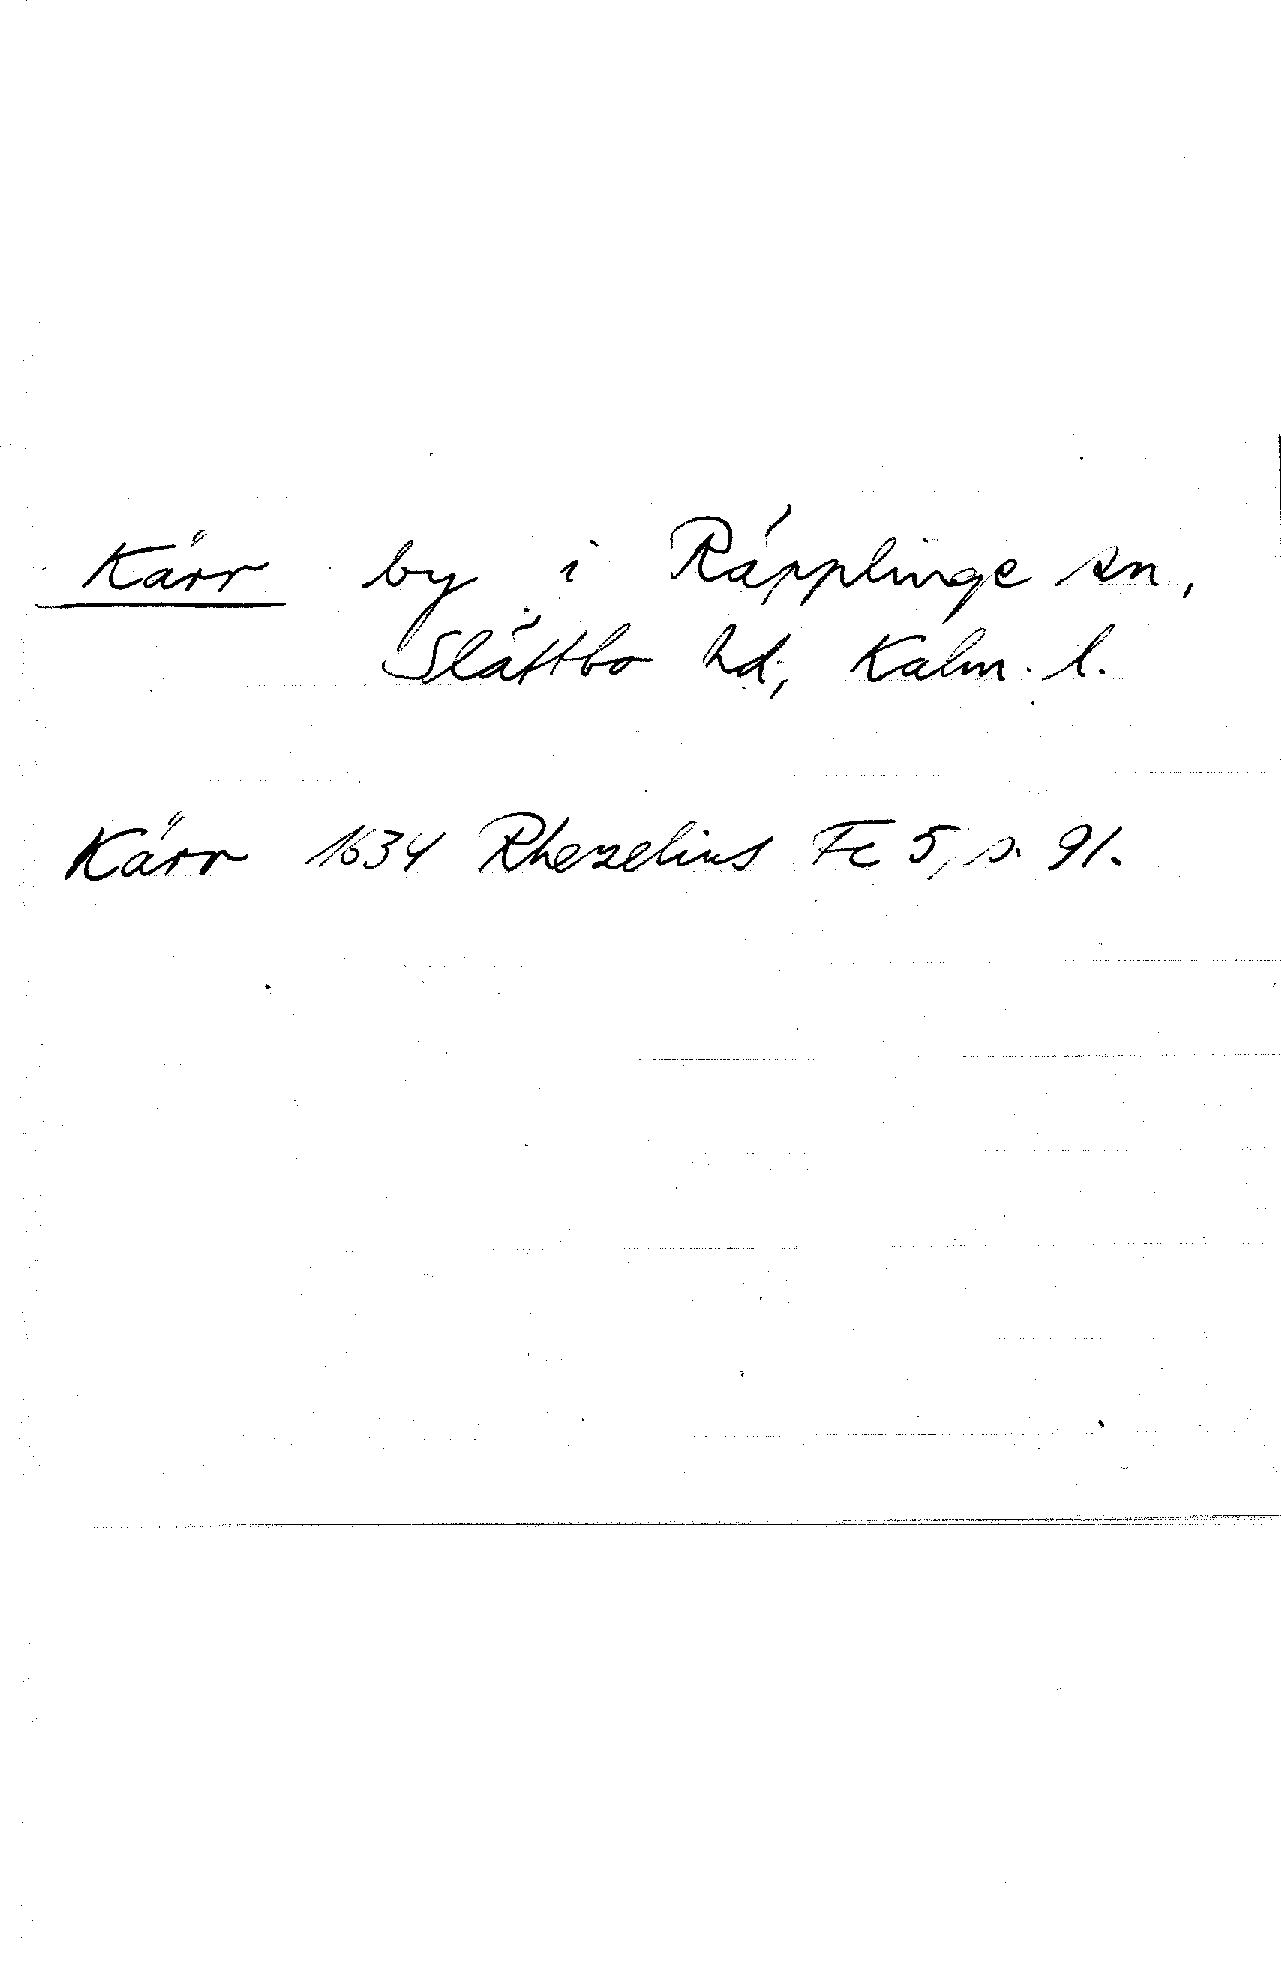 Kärr by i Räpplinge sn,
Slättbo hd, Kalm. l.
Kärr 1634 Rhezelius Fc 5, s. 91.